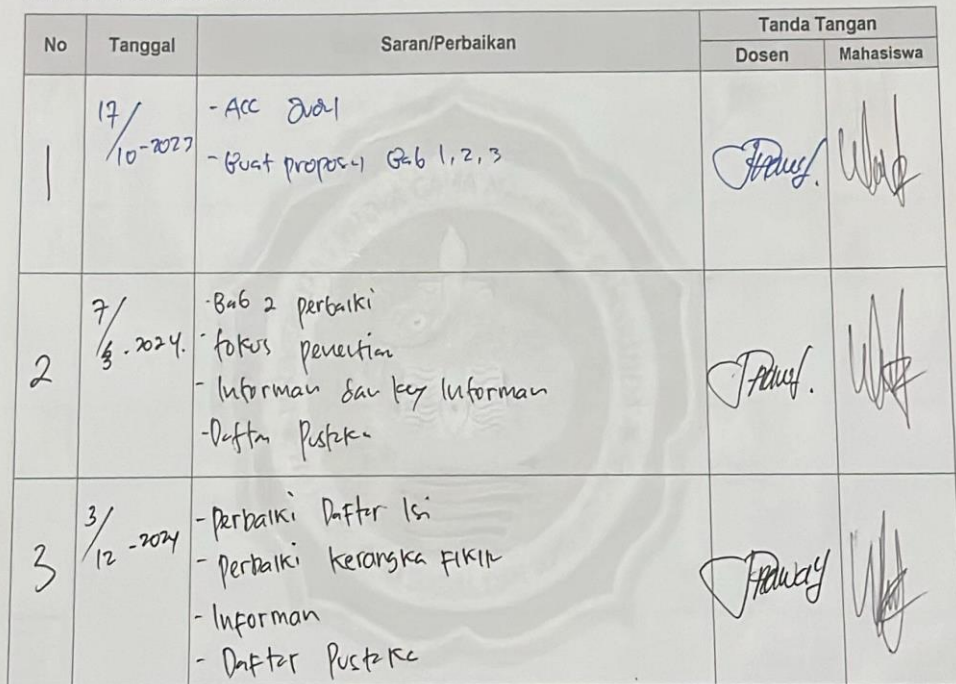 No Tanggal Saran/Perbaikan Tanda Tangan
Dosen Mahasiswa
1 17/10-2023 - Acc Judul
- Buat proposal Bab 1, 2, 3
2 7/ - 2024. - Bab 2 perbaiki
- fokus penelitian
- Informan dan key Informan
- Daftar Pustaka
3 3/12 - 2024 - Perbaiki Daftar Isi
- Perbaiki kerangka FIKIR
- Informan
- Daftar Pustaka